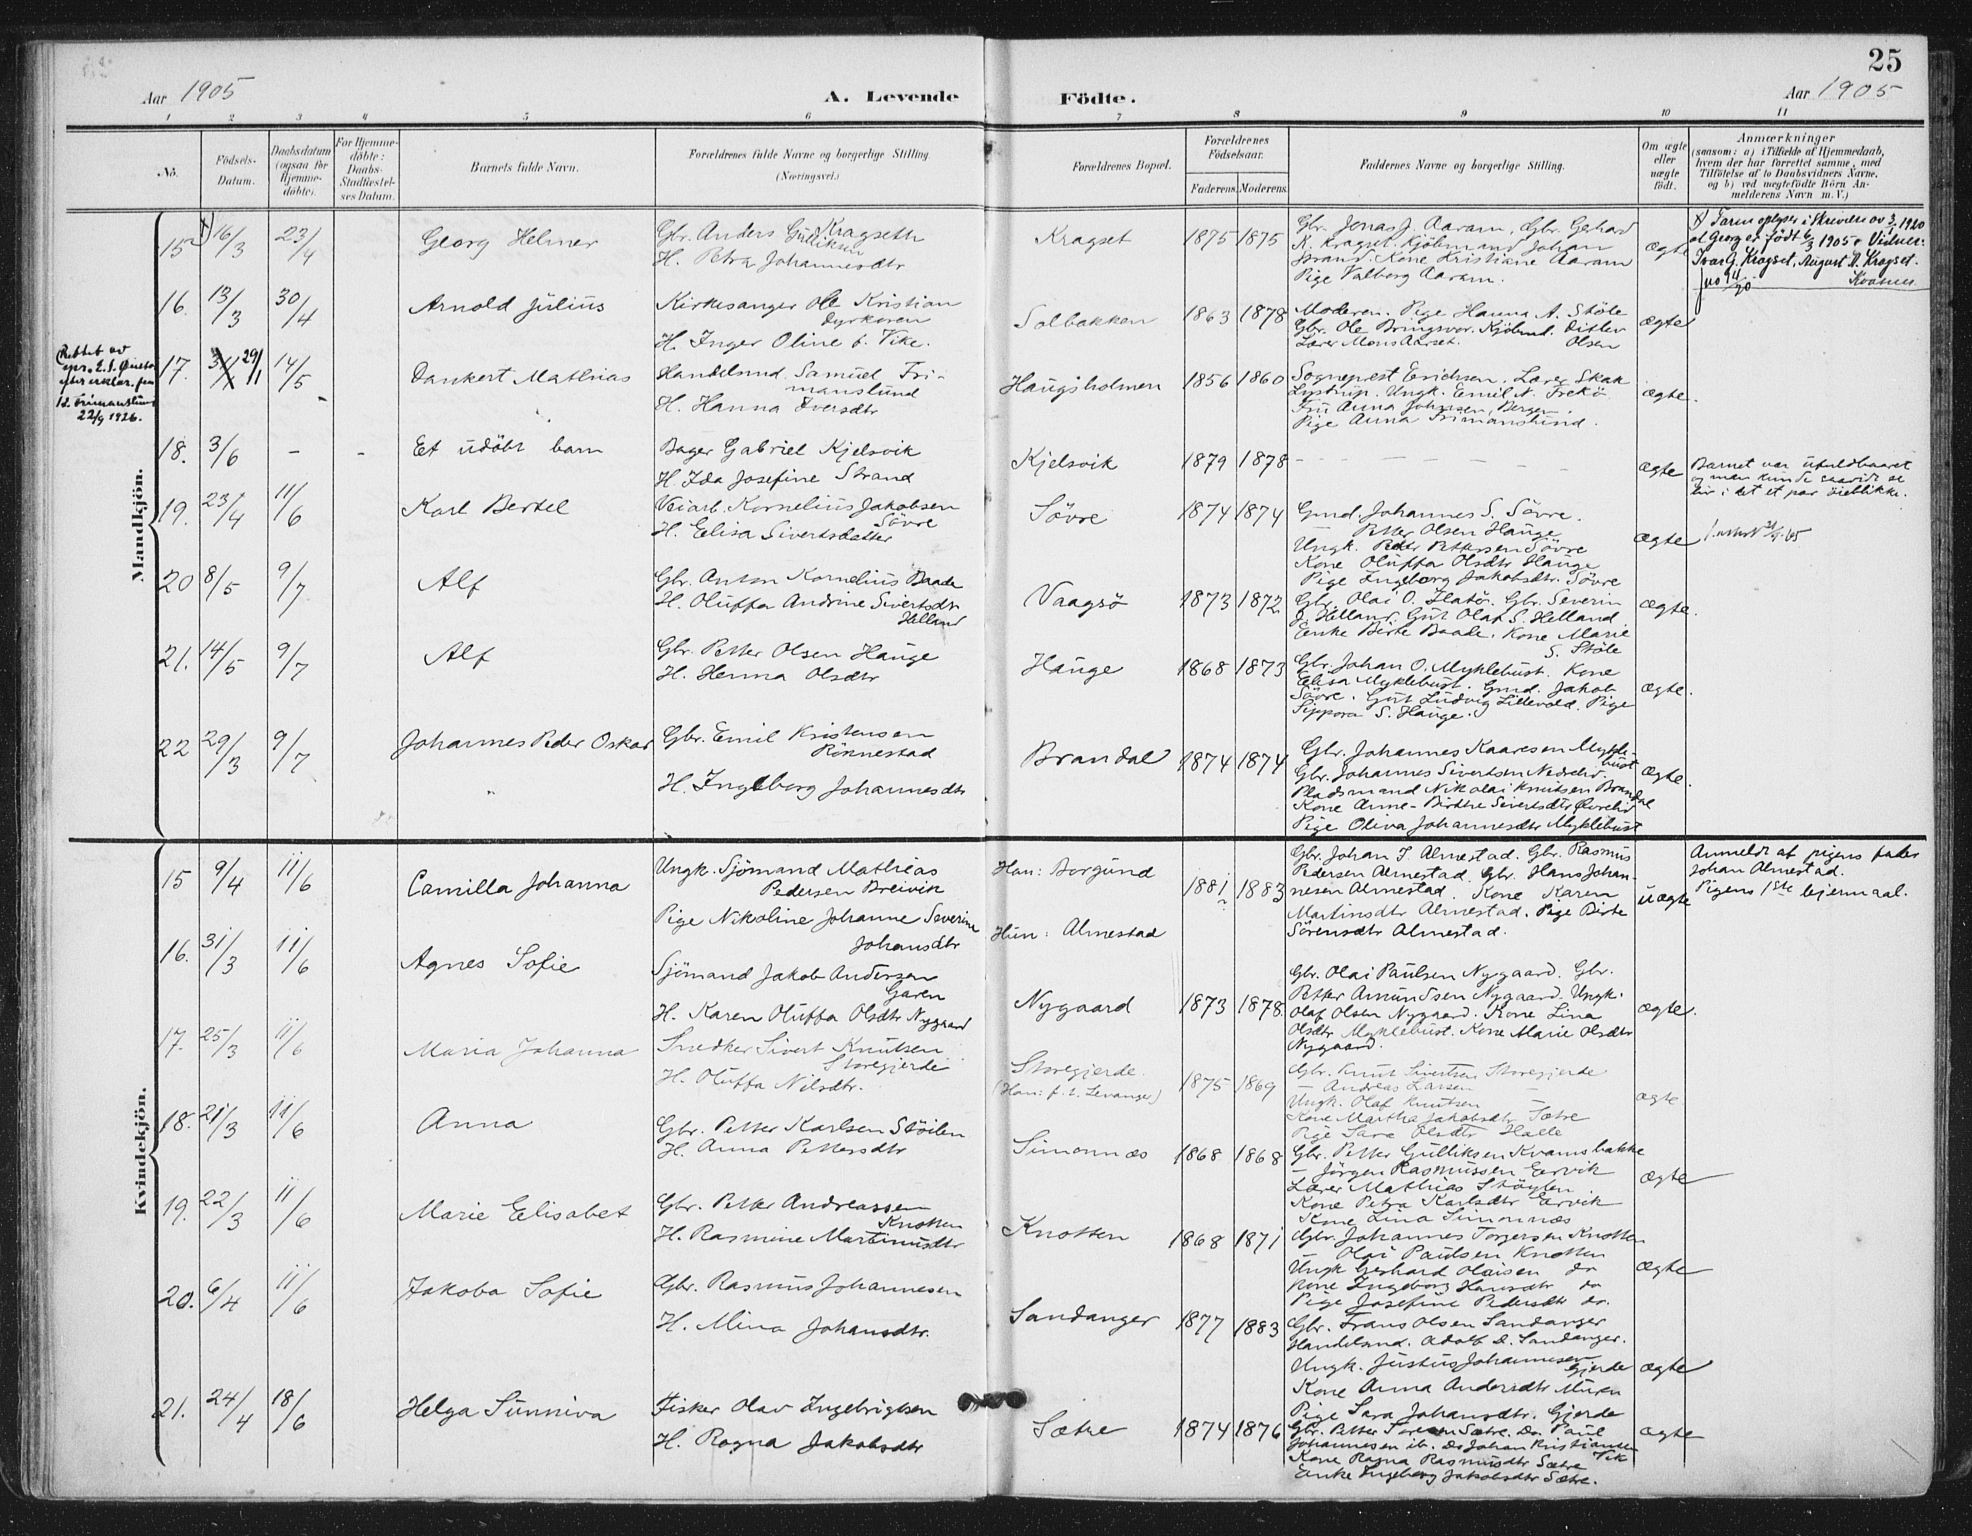 25
Aar 1905
A. Levende
Födte.
Aar 1905
1 2 3 4 5 6 7 8 9 10 11
No.
Födsels-Datum.
Daabsdatum (ogsaa for Hjemme-döbte).
For Hjemme-döbte: Daabs-Stadfæstel-ses Datum.
Barnets fulde Navn.
Forældrenes fulde Navne og borgerlige Stilling (Næringsvei.)
Forældrenes Bopæl.
Forældrenes Födselsaar.
Faderens. Moderens.
Faddernes Navne og borgerlige Stilling.
Om ægte eller uægte födt.
Anmærkninger
(saasom: a) i Tilfælde af Hjemmedaab,
hvem der har forrettet samme, med
Tilföielse af to Daabsvidners Navne,
og b) ved uægtefödte Börn An-
melderens Navn m. V.)
Mandkjön.
15 16/3 23/4 Georg Helmer
Gbr. Anders Gulliksen Kragseth
H. Petra Johannesdtr
Kragset 1875 1875
Gbr. Jonas J. Aaram, Gbr. Gerhard
K. Kragset. Kjöbmand Johan
Strand. Kone Kristiane Aaram
Pige Valborg Aaram.
ægte
x) Faren oplyser i skrivelse av 3/1 1920
at Georg er født 6/3 1905. Vidner:
Ivar G. Kragset, August A. Kragset.
16. 13/3 30/4 Arnold Julius
Kirkesanger Ole Kristian
Dyrkoren
H. Inger Oline f. Vike.
Solbakken 1863 1878
Moderen. Pige Hanna A. Støle
Gbr. Ole Bringsvor. Kjöbmd. Ditlev
Olsen
Lærer Mons Aarset.
ægte
Rettet av
22/9 1926.
17. 29/1 14/5 Dankert Mathias
Handelsmd Samuel Fri-
manslund
H. Hanna Iversdtr
Haugsholmen 1856 1860
Sogneprest Erichsen. Lærer Skak
Lystrup. Ungk. Emil N. Frekö
Fru Anna Johnsen, Bergen.
Pige Anna Frimanslund.
ægte.
18. 3/6 - - Et udöbt barn
Bager Gabriel Kjelsvik
H. Ida Josefine Strand
Kjelsvik 1879 1878
ægte
Barnet var ufuldbaaret
og man kunde saavidt se
liv i det et par øieblikke.
19. 23/4 11/6 Karl Bertel
Veiarb. Kornelius Jakobsen
Sövre
H. Elisa Sivertsdatter
Sövre 1874 1874
Gmd. Johannes S. Sövre.
Petter Olsen Hauge
Ungk. Peder Pettersen Sövre
Kone Oluffa Olsdtr Hauge
Pige Ingeborg Jakobsdtr. Sövre
ægte
20 8/5 9/7 Alf
Gbr. Anton Kornelius Baade
H. Oluffa Andrine Sivertsdtr
Helland
Vaagsö 1873 1872
Gbr. Olai O. Flatö. Gbr. Severin
J. Helland. Gut Olaf S. Helland
Enke Birte Baade. Kone Marie
S. Støle
ægte.
21. 14/5 9/7 Alf
Gbr. Petter Olsen Hauge
H. Henna Olsdtr
Hauge 1868 1873
Gbr. Johan O. Myklebust. Kone
Elisa Myklebust. Gmd. Jakob
Sövre. Gut Ludvig Lillevold. Pige
Sippora S. Hauge.
ægte.
22 29/3 9/7 Johannes Peder Oskar
Gbr. Emil Kristensen
Rönnestad
H. Ingeborg Johannesdtr
Brandal 1874 1874
Gbr. Johannes Kaaresen Mykle-
bust
Gbr. Johannes Sivertsen Nedrelid.
Pladsmand Nikolai Knutsen Brandal
Kone Anne-Birthe Sivertsdtr Øvrelid
Pige Oliva Johannesdtr Myklebust
ægte.
Kvindekjön.
15 9/4 11/6 Camilla Johanna
Ungk. Sjömand Mathias
Pedersen Breivik
Pige Nikoline Johanne Severine
Johansdtr
Han: Borgund
Hun: Almestad
1881 1883
Gbr. Johan J. Almestad. Gbr. Rasmus
Pedersen Almestad. Gbr. Hans Johan-
nesen Almestad. Kone Karen
Martinsdtr Almestad. Pige Birte
Sörensdtr Almestad.
uægte
Anmeldt af pigens fader
Johan Almestad.
Pigens 1ste leiermaal.
16. 31/3 11/6 Agnes Sofie
Sjömand Jakob Andersen
Garen
H. Karen Oluffa Olsdtr Nygaard
Nygaard 1873 1878.
Gbr. Olai Paulsen Nygaard. Gbr.
Petter Amundsen Nygaard. Ungk.
Olaf Olsen Nygaard. Kone Lina
Olsdtr Myklebust. Kone Marie Olsdtr
Nygaard.
ægte.
17. 25/3 11/6 Maria Johanna
Snedker Sivert Knutsen
Storegjerde
H. Oluffa Nilsdtr.
Storegjerde
(Han: f. t. Levanger)
1875 1869
Gbr. Knut Sivertsen Storegjerde
— Andreas Larsen —
Ungk. Olaf Knutsen —
Kone Martha Jakobsdtr Sætre
Pige Sara Olsdtr Halle
ægte
18. 21/3 11/6 Anna
Gbr. Petter Karlsen Stöilen
H. Anna Pettersdtr
Simonnæs 1868 1868
Gbr. Petter Gulliksen Kvamsbakke
— Jörgen Rasmussen Ervik
Lærer Mathias Stöylen
Kone Petra Karlsdtr Ervik
Kone Lina Simonnæs
ægte
19. 22/3 11/6 Marie Elisabet
Gbr. Petter Andreassen
Knotten
H. Rasmine Martinusdtr
Knotten 1868 1871
Gbr. Johannes Torgersen Knotten
Olai Paulsen Knotten
Ungk Gerhard Olaisen do
Kone Ingeborg Hansdtr do
Pige Josefine Pedersdtr do.
ægte
20. 6/4 11/6 Jakoba Sofie
Gbr. Rasmus Johannesen
H. Mina Johansdtr.
Sandanger 1877 1883
Gbr. Frans Olsen Sandanger
Handelsmd. Adolf D. Sandanger.
Ungk. Justus Johannesen
Gjerde
Kone Anna Andersdtr Muren
Pige Sara Johansdtr. Gjerde
ægte
21. 24/4 18/6 Helga Sunniva
Fisker Olav Ingebrigtsen
H. Ragna Jakobsdtr
Sætre 1874 1876
Gbr. Petter Sørensen Sætre. Do. Paul
Johannesen ib. Do Johan Kristiansen
Vik
Kone Ragna Rasmusdtr Sætre
Enke Ingeborg Jakobsdtr Sætre.
ægte